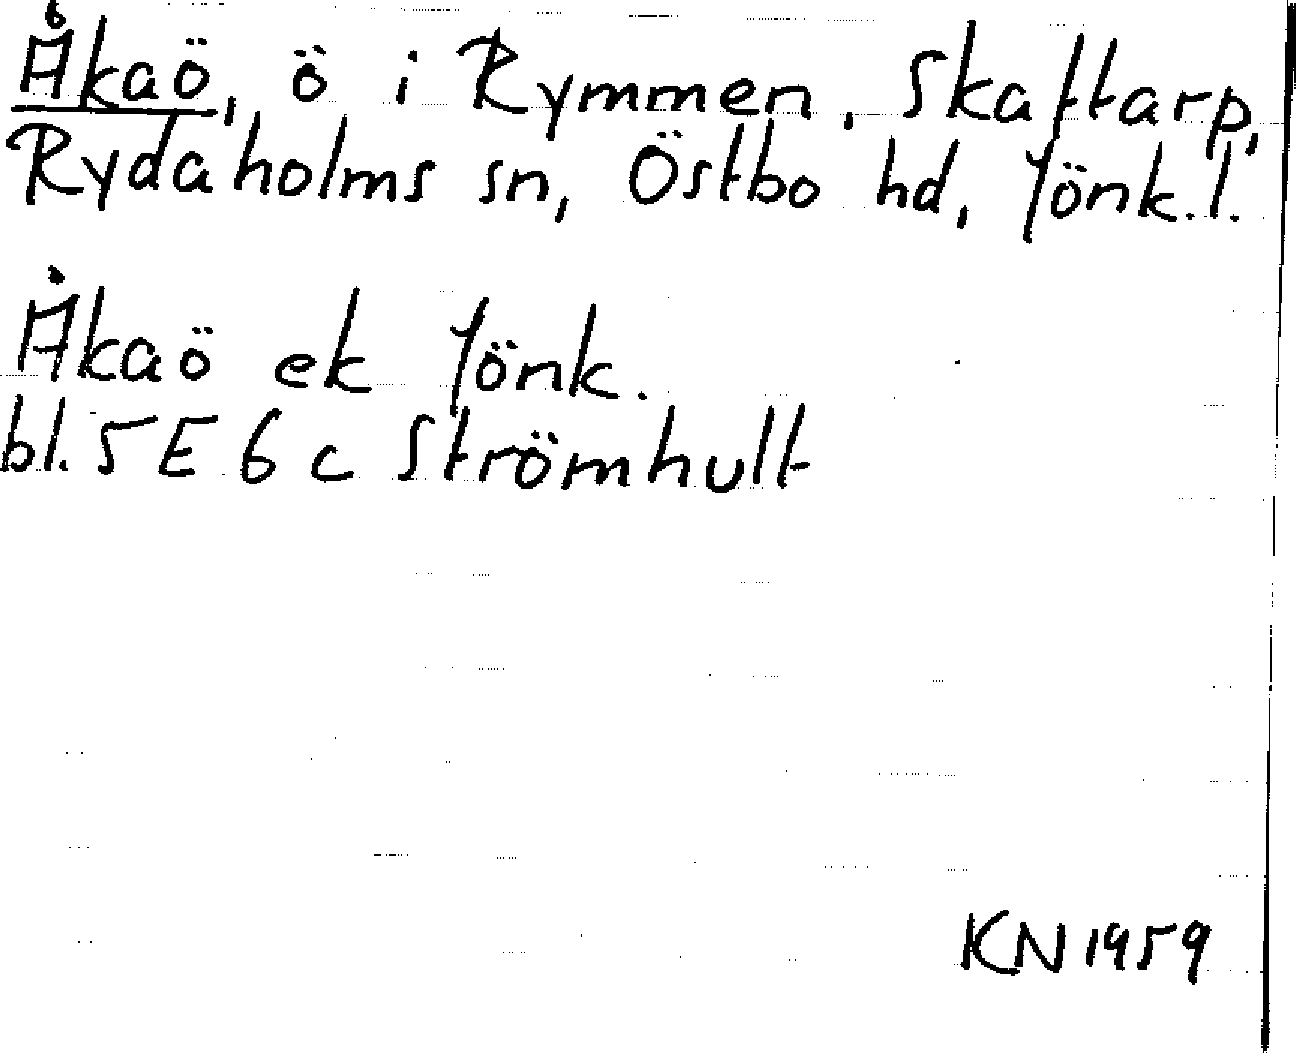 Åkaö, ö i Rymmen, Skaftarp,
Rydaholms sn, Östbo hd, Jönk.l.
Åkaö ek Jönk.
bl. 5 E 6 c Strömhult
KN 1959